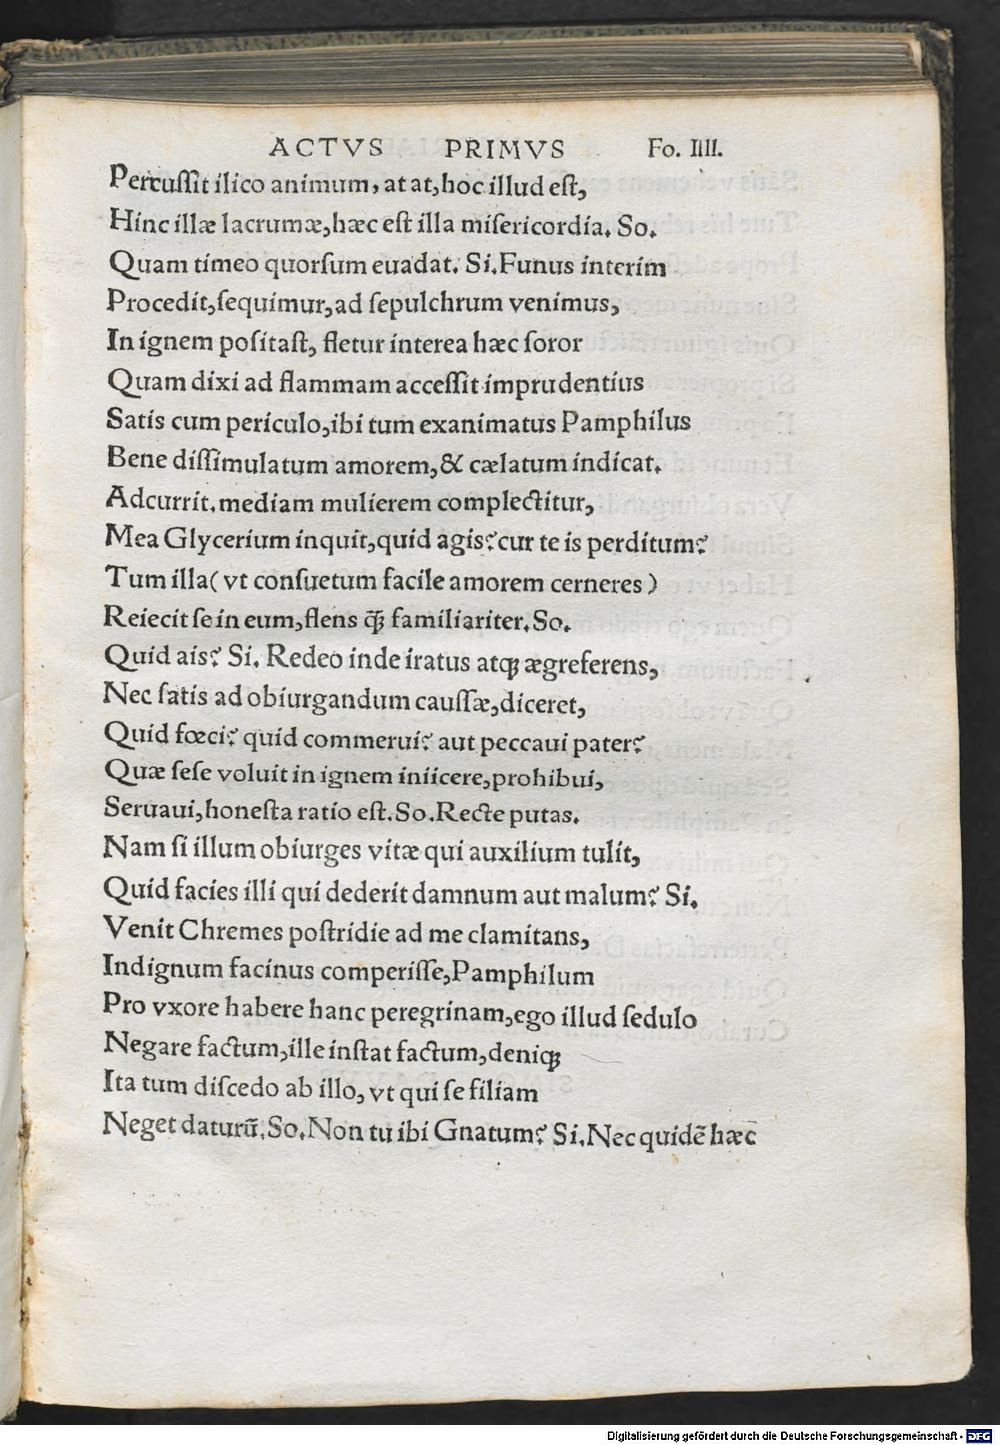 ACTVS PRIMVS Fo. IIII.
Percussit ilico animum, at at, hoc illud est,
Hinc illæ lacrumæ, hæc est illa misericordia. So.
Quam timeo quorsum euadat. Si. Funus interim
Procedit, sequimur, ad sepulchrum venimus,
In ignem positast, fletur interea hæc soror
Quam dixi ad flammam accessit imprudentius
Satis cum periculo, ibi tum exanimatus Pamphilus
Bene dissimulatum amorem, & cælatum indicat.
Adcurrit. mediam mulierem complectitur,
Mea Glycerium inquit, quid agis? cur te is perditum?
Tum illa (vt consuetum facile amorem cerneres)
Reiecit se in eum, flens q̄ꝫ familiariter. So.
Quid ais? Si. Redeo inde iratus atqꝫ ægreferens,
Nec satis ad obiurgandum caussæ, diceret,
Quid fœci? quid commerui? aut peccaui pater?
Quæ sese voluit in ignem iniicere, prohibui,
Seruaui, honesta ratio est. So. Recte putas.
Nam si illum obiurges vitæ qui auxilium tulit,
Quid facies illi qui dederit damnum aut malum? Si.
Venit Chremes postridie ad me clamitans,
Indignum facinus comperisse, Pamphilum
Pro vxore habere hanc peregrinam, ego illud sedulo
Negare factum, ille instat factum, deniqꝫ
Ita tum discedo ab illo, vt qui se filiam
Neget daturū. So. Non tu ibi Gnatum? Si. Nec quidē hæc
Digitalisierung gefördert durch die Deutsche Forschungsgemeinschaft - DFG